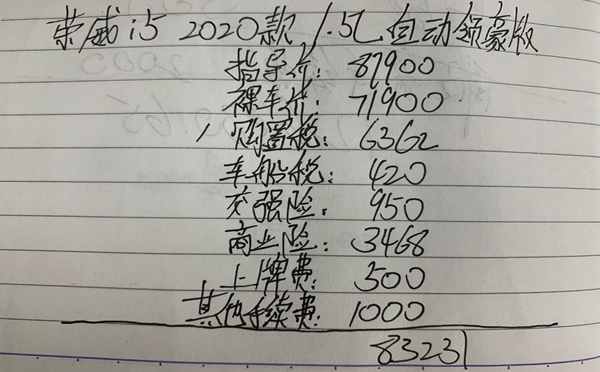 荣威i5 2020款 1.5L 自动领豪版
指导价: 87900
裸车价: 71900
购置税: 6362
车船税: 420
交强险: 950
商业险: 3468
上牌费: 500
其他手续费: 1000
83231